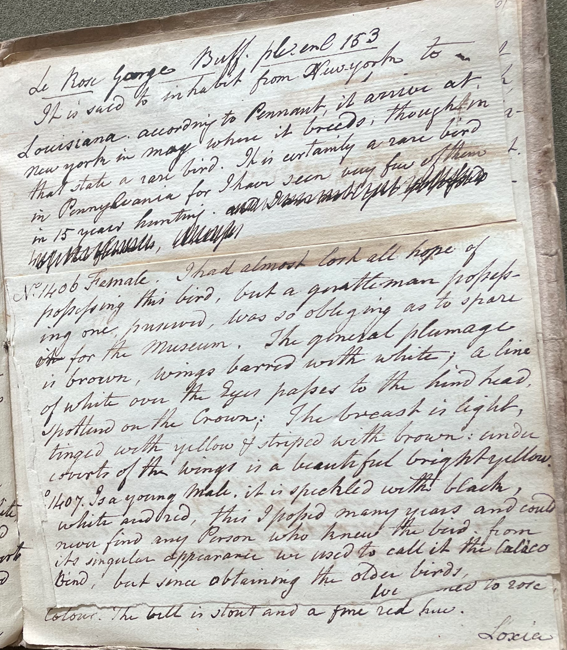 Le Rose gorge Buff. pl. enl 153
It is said to inhabit from New york to
Louisiana. according to Pennant, it arrive at
new york in may where it breeds, though in
that state a rare bird. It is certainly a rare bird
in Pennsylvania for I have seen very few of them
in 15 years hunting.
No. 1406 Female, I had almost lost all hope of
possessing this bird, but a gentleman possess-
ing one, was so obliging as to spare
for the Museum. The general plumage
is brown, wings barred with white; a line
of white over the Eyes passes to the hind head,
spotted on the Crown; The breast is light,
tinged with yellow & striped with brown: under
coverts of the wings is a beautiful bright yellow.
1407. Is a young Male. it is speckled with black,
white and red, this I possd many years and could
never find any Person who knew the bird from
its singular appearance we used to call it the Calico
bird, but since obtaining the older birds,
we to rose
colour. The bill is stout and a fine red hue.
Loxia